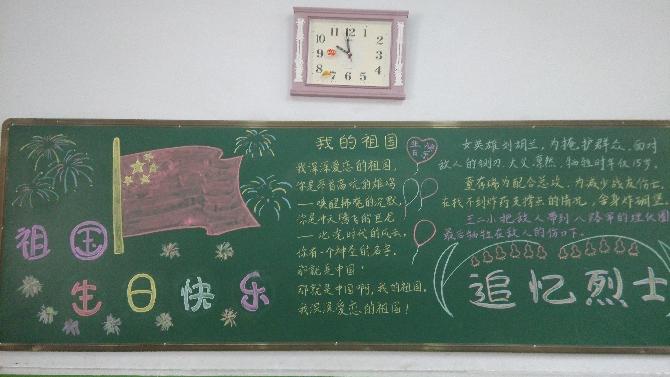 10 11 12 1 2 3 4 5 6 7 8 9
祖国
生日快乐
我的祖国
我深深爱恋的祖国,
你是昂首高吭的雄鸡
——唤醒拂晓的沉默,
你是冲天腾飞的巨龙
——叱咤时代的风云,
你有一个神圣的名字,
那就是中国!
那就是中国啊,我的祖国。
我深深爱恋的祖国!
生日快乐
女英雄刘胡兰,为掩护群众,面对
敌人的铡刀,大义凛然,牺牲时年仅15岁。
董存瑞为配合总攻,为减少战友伤亡
在找不到炸药支撑点的情况,舍身炸碉堡。
王二小把敌人带到八路军的埋伏圈
最后牺牲在敌人的
追忆烈士